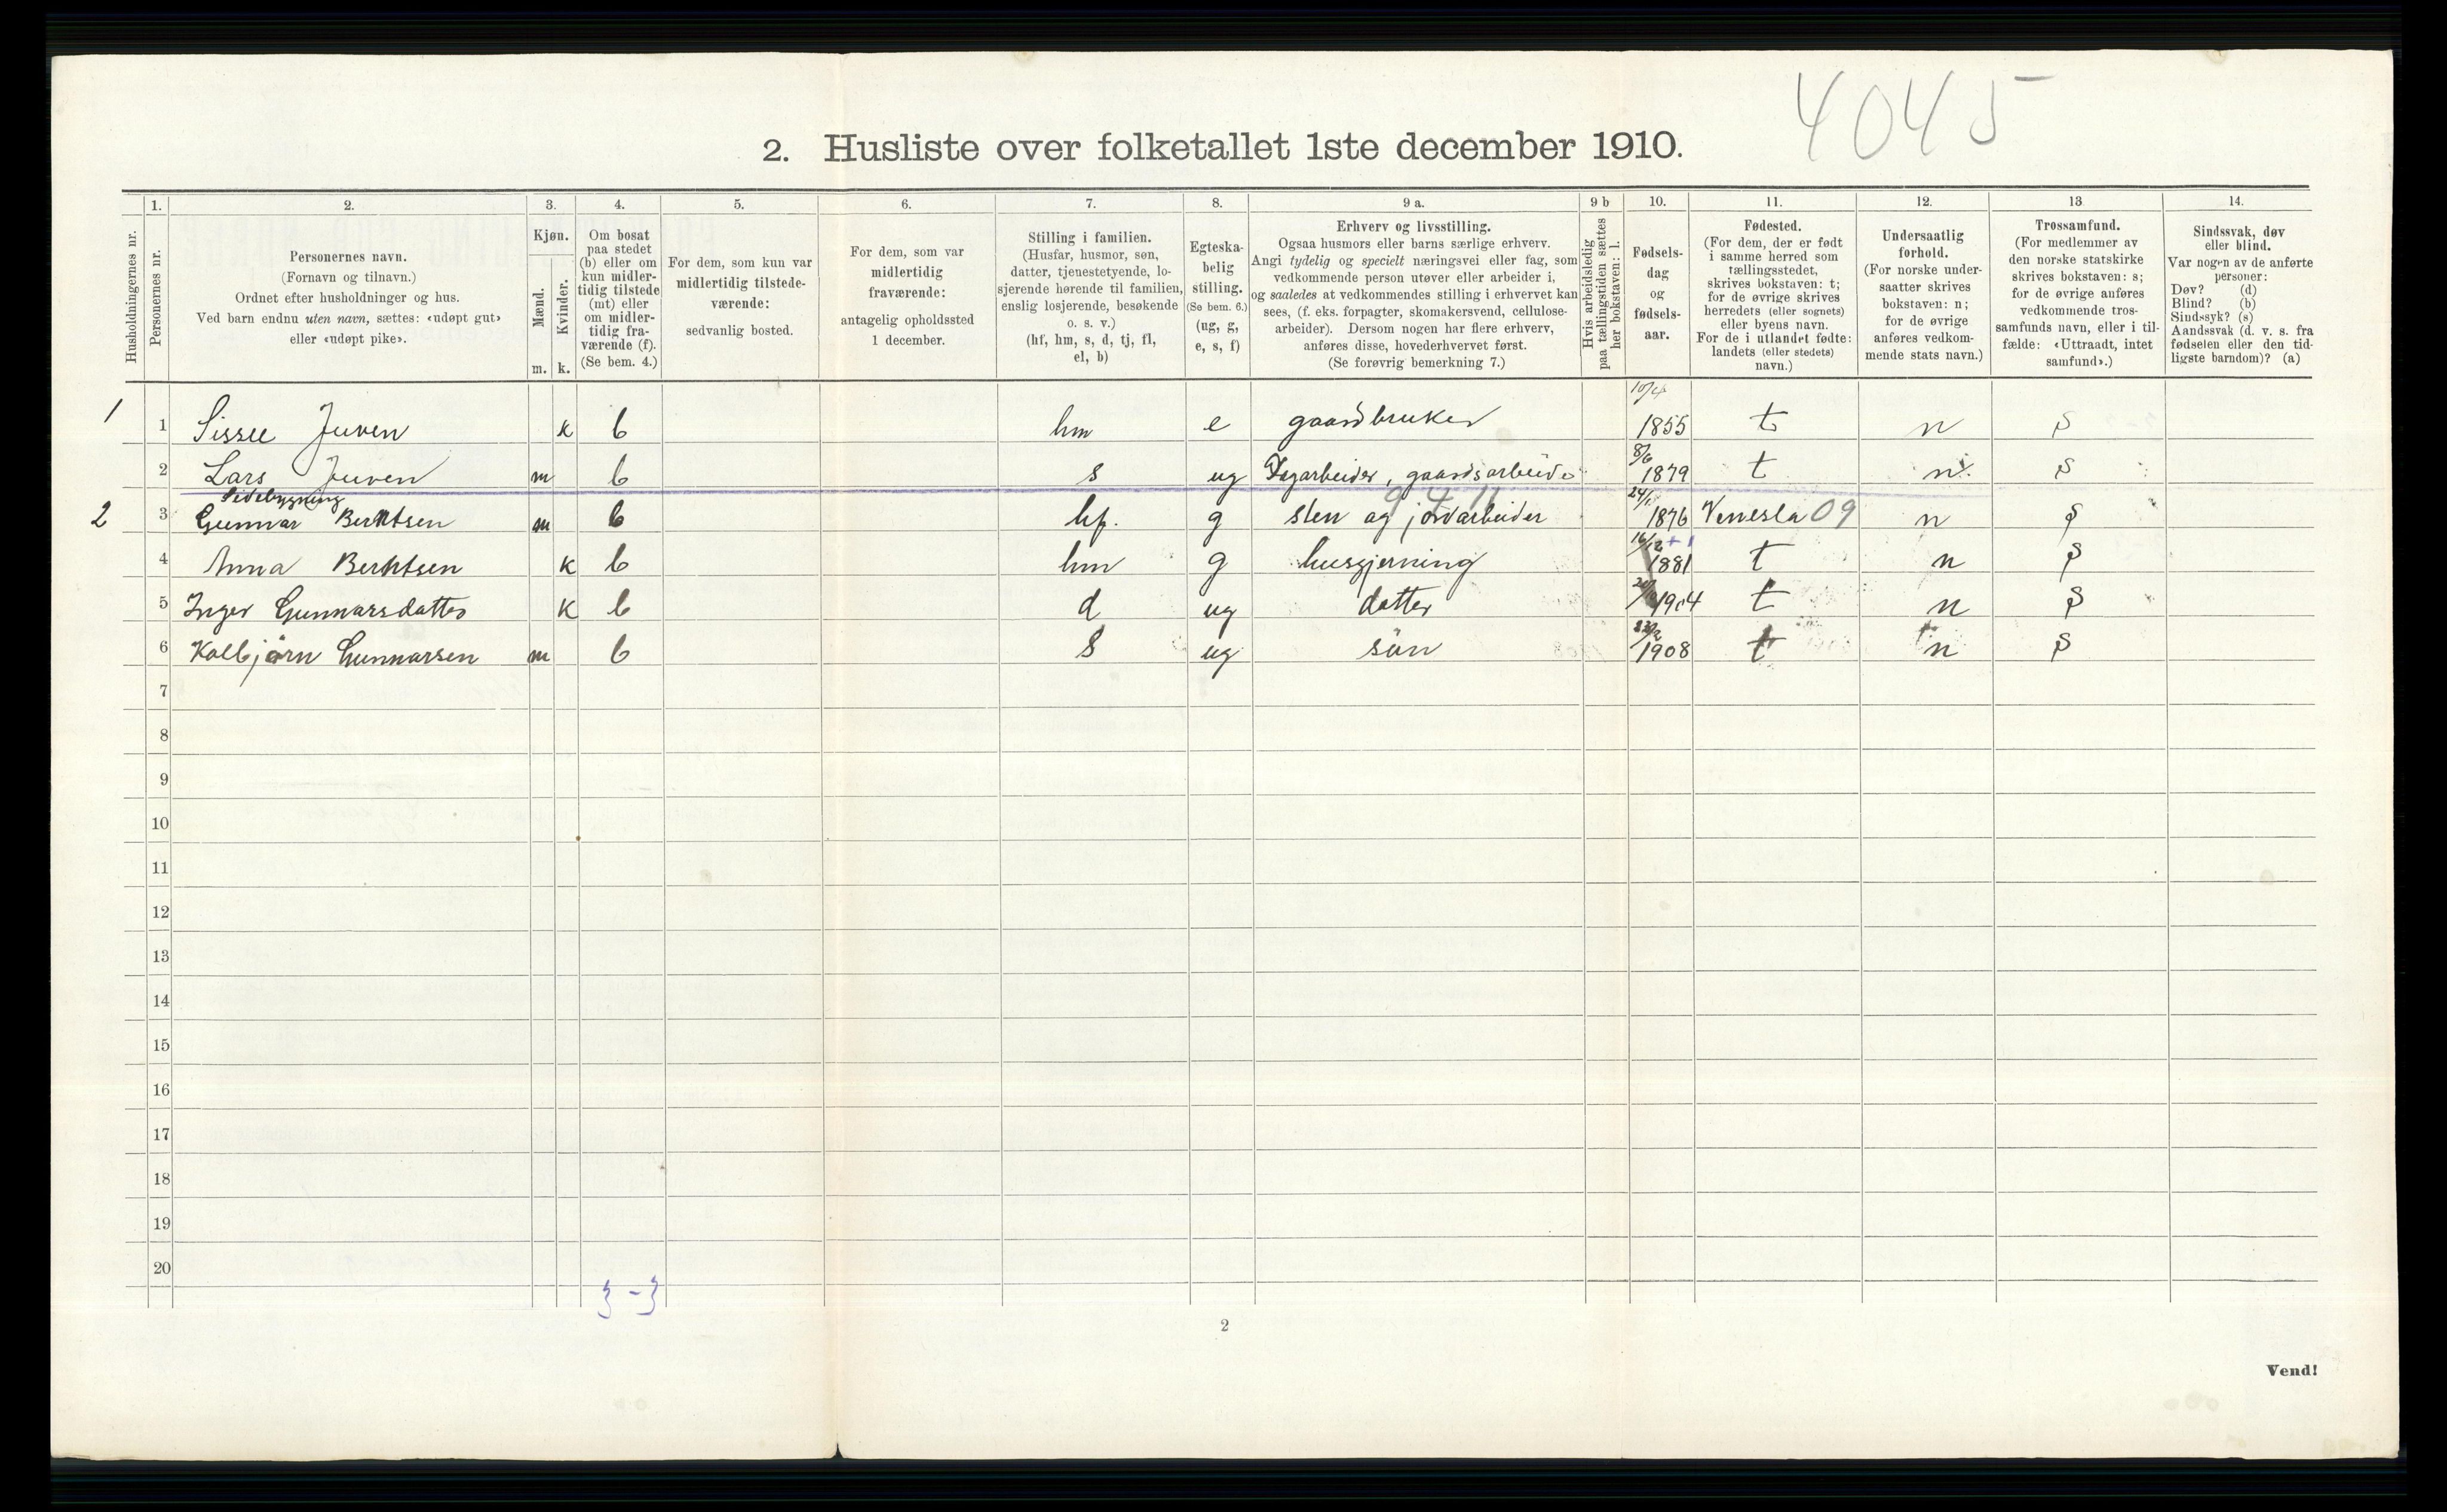 4045
2. Husliste over folketallet 1ste december 1910.
Husholdningernes nr.
1.
Personernes nr.
2.
Personernes navn.
(Fornavn og tilnavn.)
Ordnet efter husholdninger og hus.
Ved barn endnu uten navn, sættes: «udøpt gut»
eller «udøpt pike».
3.
Kjøn.
Mænd.
Kvinder.
m. k.
4.
Om bosat
paa stedet
(b) eller om
kun midler-
tidig tilstede
(mt) eller
om midler-
tidig fra-
værende (f).
(Se bem. 4.)
5.
For dem, som kun var
midlertidig tilstede-
værende:
sedvanlig bosted.
6.
For dem, som var
midlertidig
fraværende:
antagelig opholdssted
1 december.
7.
Stilling i familien.
(Husfar, husmor, søn,
datter, tjenestetyende, lo-
sjerende hørende til familien,
enslig losjerende, besøkende
o. s. v.)
(hf, hm, s, d, tj, fl,
el, b)
8.
Egteska-
belig
stilling.
(Se bem. 6.)
(ug, g,
e, s, f)
9 a.
Erhverv og livsstilling.
Ogsaa husmors eller barns særlige erhverv.
Angi tydelig og specielt næringsvei eller fag, som
vedkommende person utøver eller arbeider i,
og saaledes at vedkommendes stilling i erhvervet kan
sees, (f. eks. forpagter, skomakersvend, cellulose-
arbeider). Dersom nogen har flere erhverv,
anføres disse, hovederhvervet først.
(Se forøvrig bemerkning 7.)
9 b
Hvis arbeidsledig
paa tællingstiden sættes
her bokstaven: l.
10.
Fødsels-
dag
og
fødsels-
aar.
11.
Fødested.
(For dem, der er født
i samme herred som
tællingsstedet,
skrives bokstaven: t;
for de øvrige skrives
herredets (eller sognets)
eller byens navn.
For de i utlandet fødte:
landets (eller stedets)
navn.)
12.
Undersaatlig
forhold.
(For norske under-
saatter skrives
bokstaven: n;
for de øvrige
anføres vedkom-
mende stats navn.)
13.
Trossamfund.
(For medlemmer av
den norske statskirke
skrives bokstaven: s;
for de øvrige anføres
vedkommende tros-
samfunds navn, eller i til-
fælde: «Uttraadt, intet
samfund».)
14.
Sindssvak, døv
eller blind.
Var nogen av de anførte
personer:
Døv? (d)
Blind? (b)
Sindssyk? (s)
Aandssvak (d. v. s. fra
fødselen eller den tid-
ligste barndom)? (a)
1 1 Sissel Juven k b hm e gaardbruker 10/4 1855 t n s
2 Lars Juven m b s ug Dagarbeider, gaardsarbeider 8/6 1879 t n s
Sidebygning
9 4 11
2 3 Gunnar Berntsen m b hf. g sten og jordarbeider 24/1 1876 Venesla 09 n s
4 Anna Berntsen k b hm g husgjerning 16/12 1881 t n s
5 Inger Gunnarsdatter k b d ug datter 1904 t n s
6 Kolbjørn Gunnarsen m b s ug søn 1908 t n s
7
8
9
10
11
12
13
14
15
16
17
18
19
20
2
Vend!